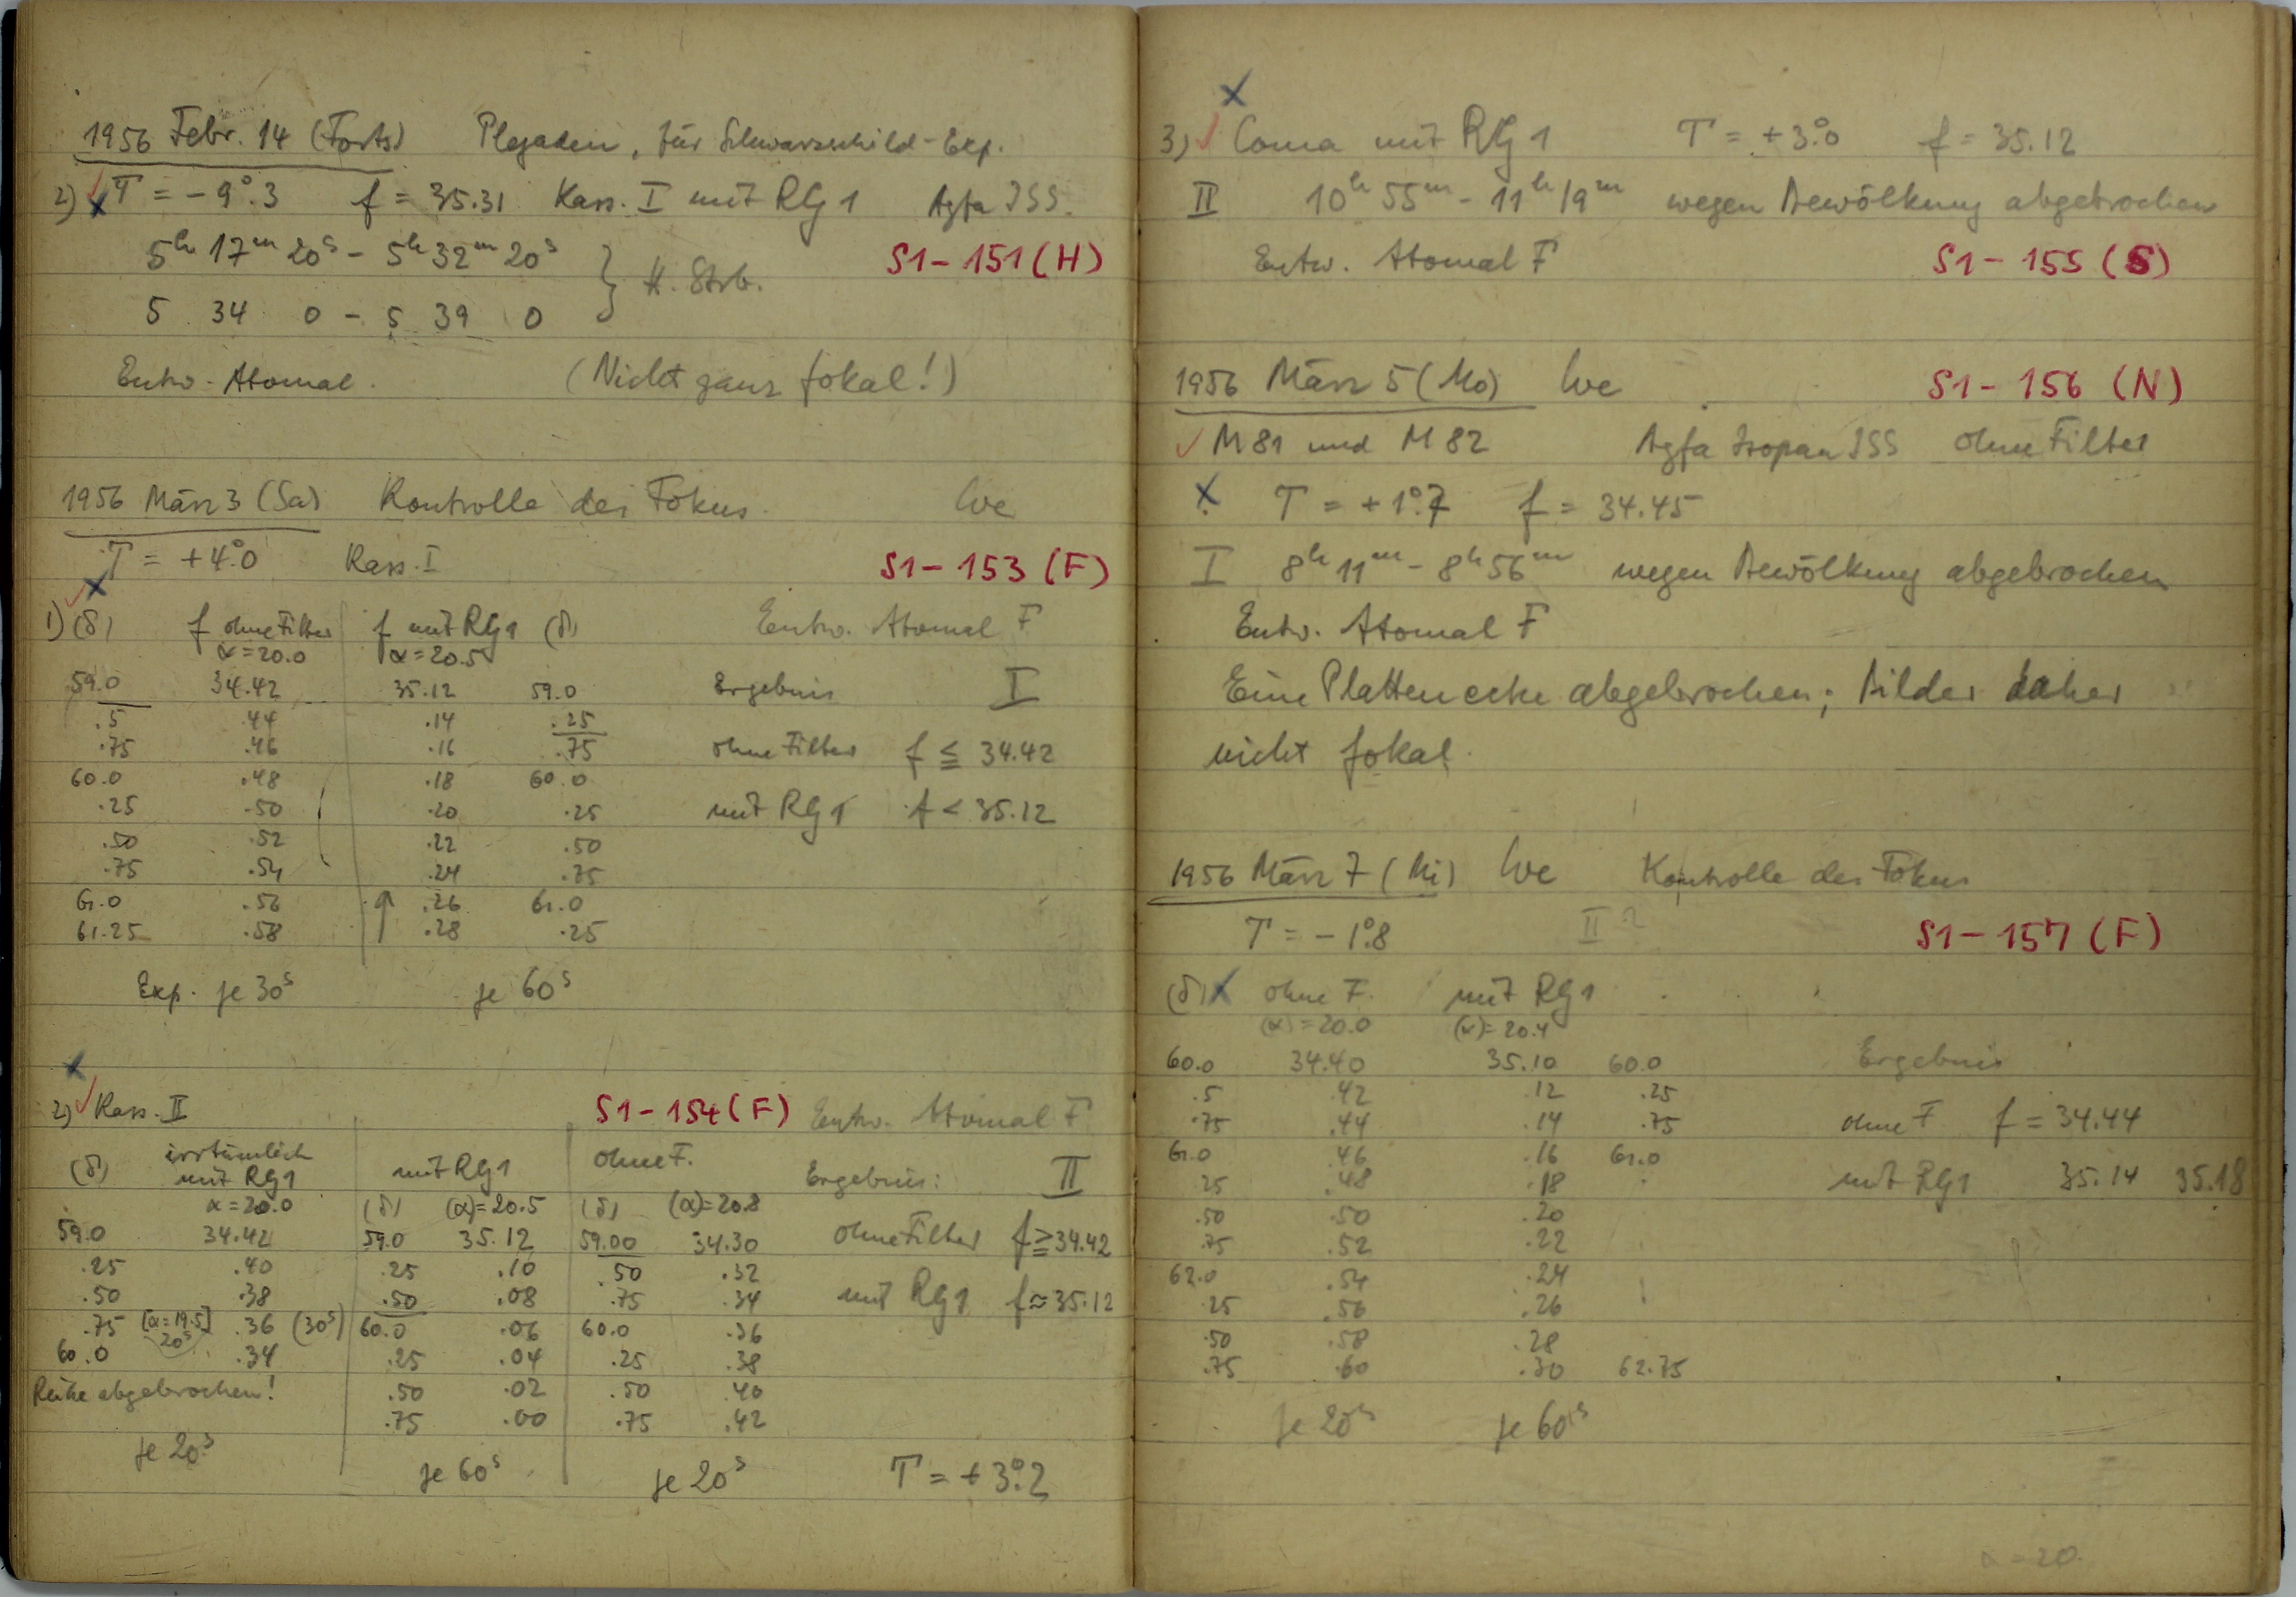 1956 Febr. 14 (Forts) Plejaden, für Schwarzschild-Exp.
2) T = -9°.3 f = 35.31 Kass. I mit RG1 Agfa ISS.
5h 17m 20s - 5h 32m 20s S1-151 (H)
} H. Strb.
5 34 0 - 5 39 0
Entw. Atomal. (Nicht ganz fokal!)
1956 März 3 (Sa) Kontrolle des Fokus We
T = +4°.0 Kass. I S1-153 (F)
1) (δ) f ohne Filter f mit RG1 (δ) Entw. Atomal F
α=20.0 α=20.5
59.0 34.42 35.12 59.0 Ergebnis I
.5 .44 .14 .25
.75 .46 .16 .75 ohne Filter f ≦ 34.42
60.0 .48 .18 60.0
.25 .50 .20 .25 mit RG1 f < 35.12
.50 .52 .22 .50
.75 .54 .24 .75
61.0 .56 .26 61.0
61.25 .58 .28 .25
Exp. je 30s je 60s
2) Kass. II S1-154 (F) Entw. Atomal F
(δ) irrtümlich mit RG1 mit RG1 ohne F. Ergebnis: II
α=20.0 (δ) (α)=20.5 (δ) (α)=20.8
59.0 34.42 59.0 35.12 59.00 34.30 ohne Filter f ≧ 34.42
.25 .40 .25 .10 .50 .32
.50 .38 .50 .08 .75 .34 mit RG1 f ≈ 35.12
.75 [α=19.5] 20s .36 (30s) 60.0 .06 60.0 .36
60.0 .34 .25 .04 .25 .38
Reihe abgebrochen! .50 .02 .50 .40
.75 .00 .75 .42
je 20s je 60s je 20s T = +3°.2
3) Coma mit RG1 T = +3°.0 f = 35.12
II 10h 55m - 11h 19m wegen Bewölkung abgebrochen
Entw. Atomal F S1-155 (S)
1956 März 5 (Mo) We S1-156 (N)
M81 und M82 Agfa Isopan ISS ohne Filter
T = +1°.7 f = 34.45
I 8h 11m - 8h 56m wegen Bewölkung abgebrochen
Entw. Atomal F
Eine Plattenecke abgebrochen; Bilder daher
nicht fokal.
1956 März 7 (Mi) We Kontrolle des Fokus
T = -1°.8 II ? S1-157 (F)
(δ) ohne F. mit RG1
(α)=20.0 (α)=20.4
60.0 34.40 35.10 60.0 Ergebnis
.5 .42 .12 .25
.75 .44 .14 .75 ohne F f = 34.44
61.0 .46 .16 61.0
.25 .48 .18 mit RG1 35.14 35.18
.50 .50 .20
.75 .52 .22
62.0 .54 .24
.25 .56 .26
.50 .58 .28
.75 .60 .30 62.75
je 20s je 60s
α=20